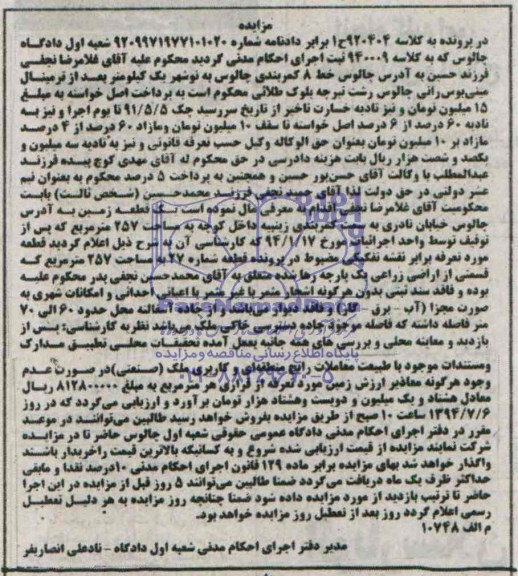 مزایده
در پرونده به کلاسه ۹۲۰۴۰۴ح۱ برابر دادنامه شماره ۹۲۰۹۹۷۱۹۷۷۱۰۱۰۲۰ شعبه اول دادگاه
چالوس که به کلاسه ۹۴۰۰۰۹ ثبت اجرای احکام مدنی گردید محکوم علیه آقای غلامرضا نجفی
فرزند حسین به آدرس چالوس خط ۸ کمربندی چالوس به نوشهر یک کیلومتر بعد از ترمینال
مینی‌بوس‌رانی چالوس رشت تیرچه بلوک طلائی محکوم است به پرداخت اصل خواسته به مبلغ
۱۵ میلیون تومان و نیز تادیه خسارت تاخیر از تاریخ سررسید چک ۹۱/۵/۵ تا یوم اجرا و نیز به
تادیه ۶۰ درصد از ۶ درصد اصل خواسته تا سقف ۱۰ میلیون تومان ومازاد ۶۰ درصد از ۴ درصد
مازاد بر ۱۰ میلیون تومان بعنوان حق الوکاله وکیل حسب تعرفه قانونی و نیز به تادیه سه میلیون و
یکصد و شصت هزار ریال بابت هزینه دادرسی در حق محکوم له آقای مهدی کوچ پیده فرزند
عبدالمطلب با وکالت آقای حسن‌پور حسین و همچنین به پرداخت ۵ درصد محکوم به بعنوان نیم
عشر دولتی در حق دولت لذا آقای حمید نجفی فرزند محمدحسین (شخص ثالث) بابت
محکومیت آقای غلامرضا نجفی اقدام به معرفی مال نموده است یک قطعه زمین به آدرس
چالوس خیابان نادری به سمت کمربندی زینبیه داخل کوچه به مساحت ۲۵۷ مترمربع که پس از
توقیف توسط واحد اجرائیات مورخ ۹۴/۱/۱۷ که کارشناسی آن به شرح ذیل اعلام گردید قطعه
مورد تعرفه برابر نقشه تفکیکی مضبوط در پرونده قطعه شماره ۲۷ به مساحت ۲۵۷ مترمربع که
قسمتی از اراضی زراعی یک پارچه رها شده متعلق به آقای محمدحسن نجفی پدر محکوم علیه
بوده و فاقد سند ثبتی بدون هرگونه اشجار مثمر یا غیر مثمر یا اعیانی احداثی و امکانات شهری به
صورت مجزا (آب - برق - گاز) و فاقد دیوار می‌باشد و از جاده آسفالته محل حدود ۶۰ الی ۷۰
متر فاصله داشته که فاصله موجود جاده دسترسی خاکی ملک می‌باشد نظریه کارشناسی: پس از
بازدید و معاینه محلی و بررسی های همه جانبه بعمل آمده تحقیقات محلی تطبیق مدارک
ومستندات موجود با طبیعت معاملات رایج منطقه‌ای و کاربری ملک (صنعتی)در صورت عدم
وجود هرگونه معاذیر ارزش زمین مورد تعرفه از قراری هر متر مربع به مبلغ ۸۱۲۸۰۰۰۰ ریال
معادل هشتاد و یک میلیون و دویست وهشتاد هزار تومان برآورد و ارزیابی می‌گردد که در روز
۱۳۹۴/۷/۶ ساعت ۱۰ صبح از طریق مزایده بفروش خواهد رسید طالبین می‌توانند در موعد
مقرر در دفتر اجرای احکام مدنی دادگاه عمومی حقوقی شعبه اول چالوس حاضر تا در مزایده
شرکت نمایند مزایده از قیمت ارزیابی شده شروع و به کسانیکه بالاترین قیمت راخریدار باشند
واگذار خواهد شد بهای مزایده برابر ماده ۱۲۹ قانون اجرای احکام مدنی ۱۰درصد نقدا و مابقی
حداکثر ظرف یک ماه دریافت می‌گردد ضمنا طالبین می‌توانند ۵ روز قبل از مزایده در این اجرا
حاضر تا ترتیب بازدید از مورد مزایده داده شود ضمنا چنانچه روز مزایده به هر دلیل تعطیل
رسمی اعلام گردد روز بعد از تعطیل روز مزایده خواهد بود.
م الف ۱۰۷۴۸
مدیر دفتر اجرای احکام مدنی شعبه اول دادگاه - نادعلی انصاریفر
پایگاه اطلاع رسانی مناقصه و مزایده